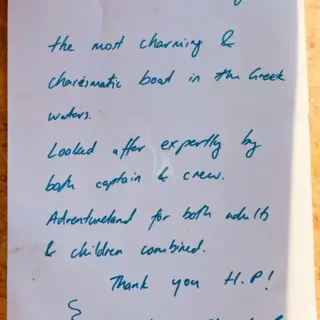 the most charming &
charismatic boat in the Greek
waters.
Looked after expertly by
both captain & crew.
Adventureland for both adults
& children combined.
Thank you H.P!